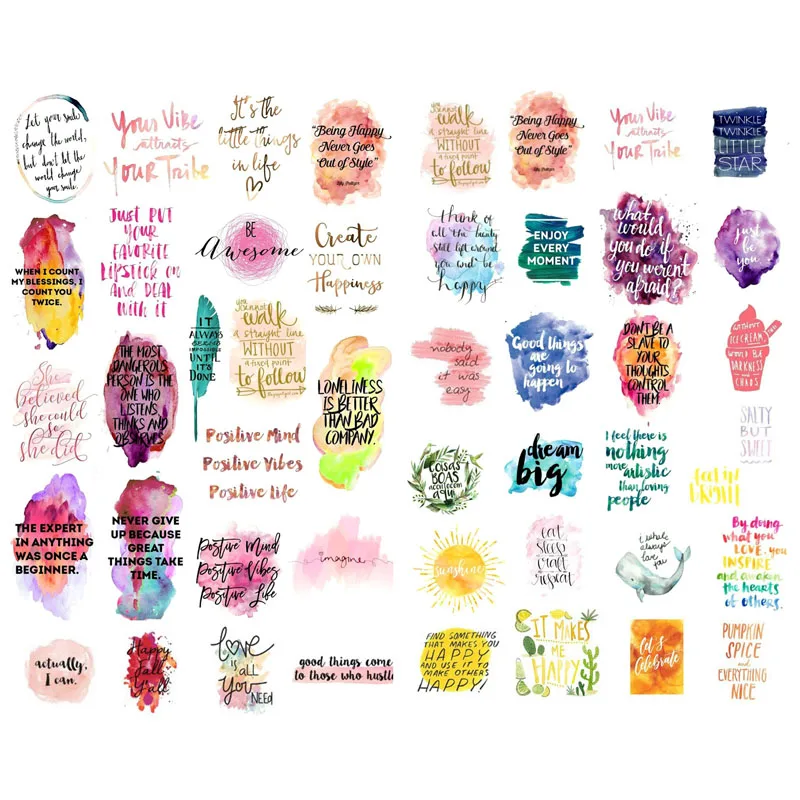 Let your smile
change the world,
but don't let the
world change
your smile.
Your Vibe
attracts
Your Tribe
It's the
little things
in life
"Being Happy
Never Goes
Out of Style"
WHEN I COUNT
MY BLESSINGS, I
COUNT YOU
TWICE.
JUST PUT
YOUR
FAVORITE
LIPSTICK ON
AND DEAL
with it
BE
Awesome
Create
YOUR OWN
Happiness
She
believed
she could
so
she did
THE MOST
DANGEROUS
PERSON IS THE
ONE WHO
LISTENS,
THINKS AND
OBSERVES.
IT
ALWAYS
SEEMS
IMPOSSIBLE
UNTIL
IT'S
DONE
you
cannot
walk
a straight line
WITHOUT
a fixed point
to follow
LONELINESS
IS BETTER
THAN BAD
COMPANY.
Positive Mind
Positive Vibes
Positive Life
THE EXPERT
IN ANYTHING
WAS ONCE A
BEGINNER.
NEVER GIVE
UP BECAUSE
GREAT
THINGS TAKE
TIME.
Positive Mind
Positive Vibes
Positive Life
imagine
actually,
I can.
Happy
fall
Y'all
LOVE
IS ALL
YOU
NEED
good things come
to those who hustle
you
cannot
walk
a straight line
WITHOUT
a fixed point
to follow
"Being Happy
Never Goes
Out of Style"
Your Vibe
attracts
Your Tribe
TWINKLE
TWINKLE
LITTLE
STAR
think of
all the beauty
still left around
you and be
happy
ENJOY
EVERY
MOMENT
what
would
you do if
you weren't
afraid?
just
be
you
nobody
said
it was
easy
Good things
are
going to
happen
DON'T BE A
SLAVE TO
YOUR
THOUGHTS,
CONTROL
THEM.
WITHOUT
ICE CREAM,
WOULD BE
DARKNESS
AND
CHAOS
SALTY
BUT
SWEET
COISAS
BOAS
acontecem
aqui
dream
big
I feel there is
nothing
more artistic
than loving
people
sunshine
eat
sleep
craft
repeat
i whale
always
love you
By doing
what you
LOVE, you
INSPIRE
and awaken
the hearts
of others.
FIND SOMETHING
THAT MAKES YOU
HAPPY
AND USE IT TO
MAKE OTHERS
HAPPY!
IT MAKES
ME
HAPPY
Let's
Celebrate
PUMPKIN
SPICE
and
EVERYTHING
NICE